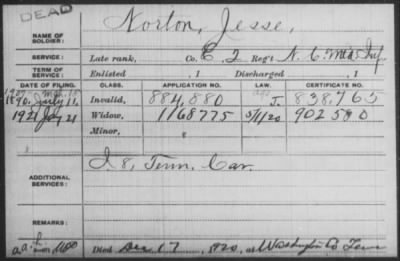 DEAD
NAME OF SOLDIER: Norton, Jesse,
SERVICE: Late rank, Co. E, 2 Reg't N. C. Mtd Inf.
TERM OF SERVICE: Enlisted , 1 Discharged , 1
DATE OF FILING. CLASS. APPLICATION NO. LAW. CERTIFICATE NO.
1890, July 11, Invalid, 884,880 J. 838,765
1921 Jay 21 Widow, 1168775 5/1/20 902580
Minor,
ADDITIONAL SERVICES: I 8, Tenn. Cav.
REMARKS:
Died Dec 17, 1920, at Washington Co Tenn